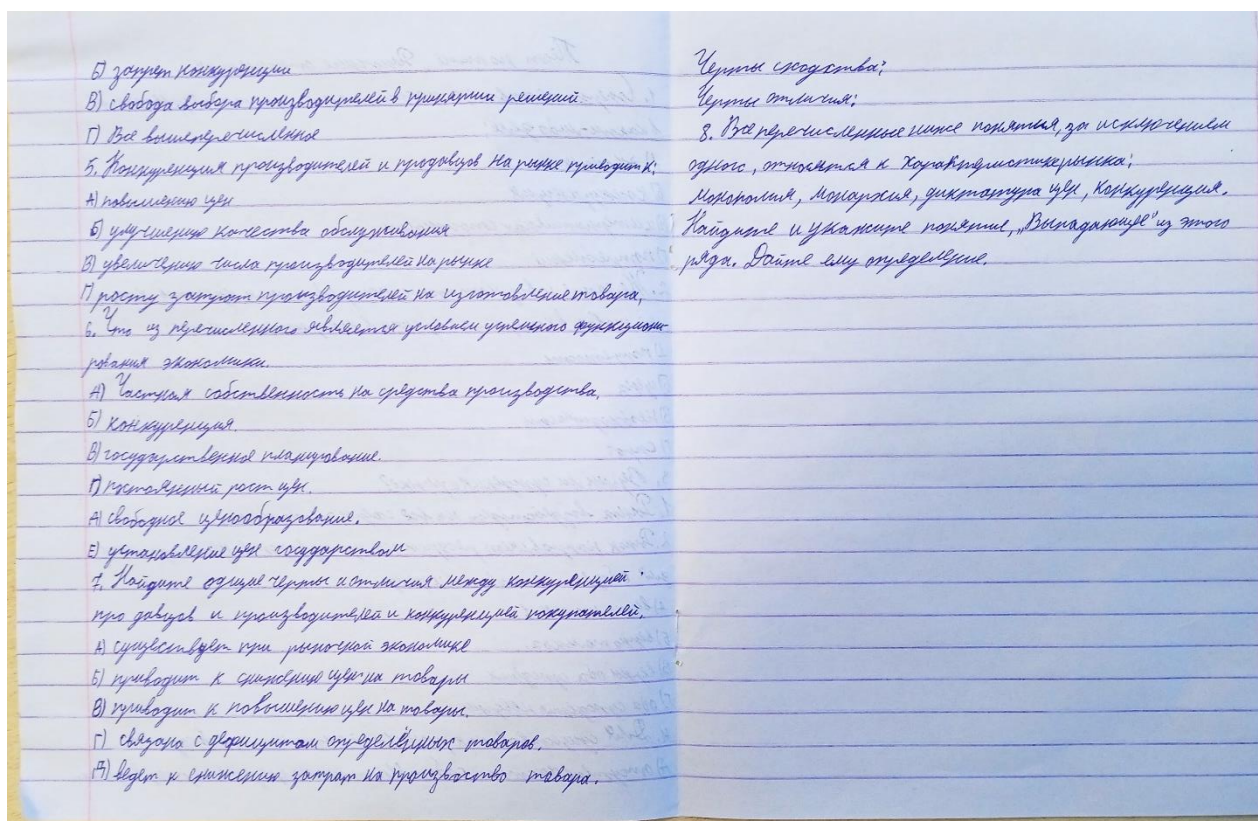 Б) запрет конкуренции
В) свобода выбора производителей в принятии решений
Г) Все вышеперечисленное
5. Конкуренция производителей и продавцов на рынке приводит к:
А) повышению цен
Б) улучшению качества обслуживания
В) увеличению числа производителей на рынке
Г) росту затрат производителей на изготовление товара,
6. Что из перечисленного является условием успешного функциони
рования экономики.
А) Частная собственность на средства производства.
Б) конкуренция.
В) государственное планирование.
Г) постоянный рост цен.
Д) свободное ценообразование.
Е) установление цен государством
7. Найдите общие черты и отличия между конкуренцией
про давцов и производителей и конкуренцией покупателей.
А) существует при рыночной экономике
Б) приводит к снижению цен на товары
В) приводит к повышению цен на товары.
Г) связана с дефицитом определённых товаров.
Д) ведет к снижению затрат на произвоство товара.
Черты сходства:
Черты отличия:
8. Все перечисленные ниже понятия, за исключением
одного, относятся к характеристике рынка:
монополия, монархия, диктатура цен, конкуренция.
Найдите и укажите понятие, „Выпадающее" из этого
ряда. Дайте ему определение.